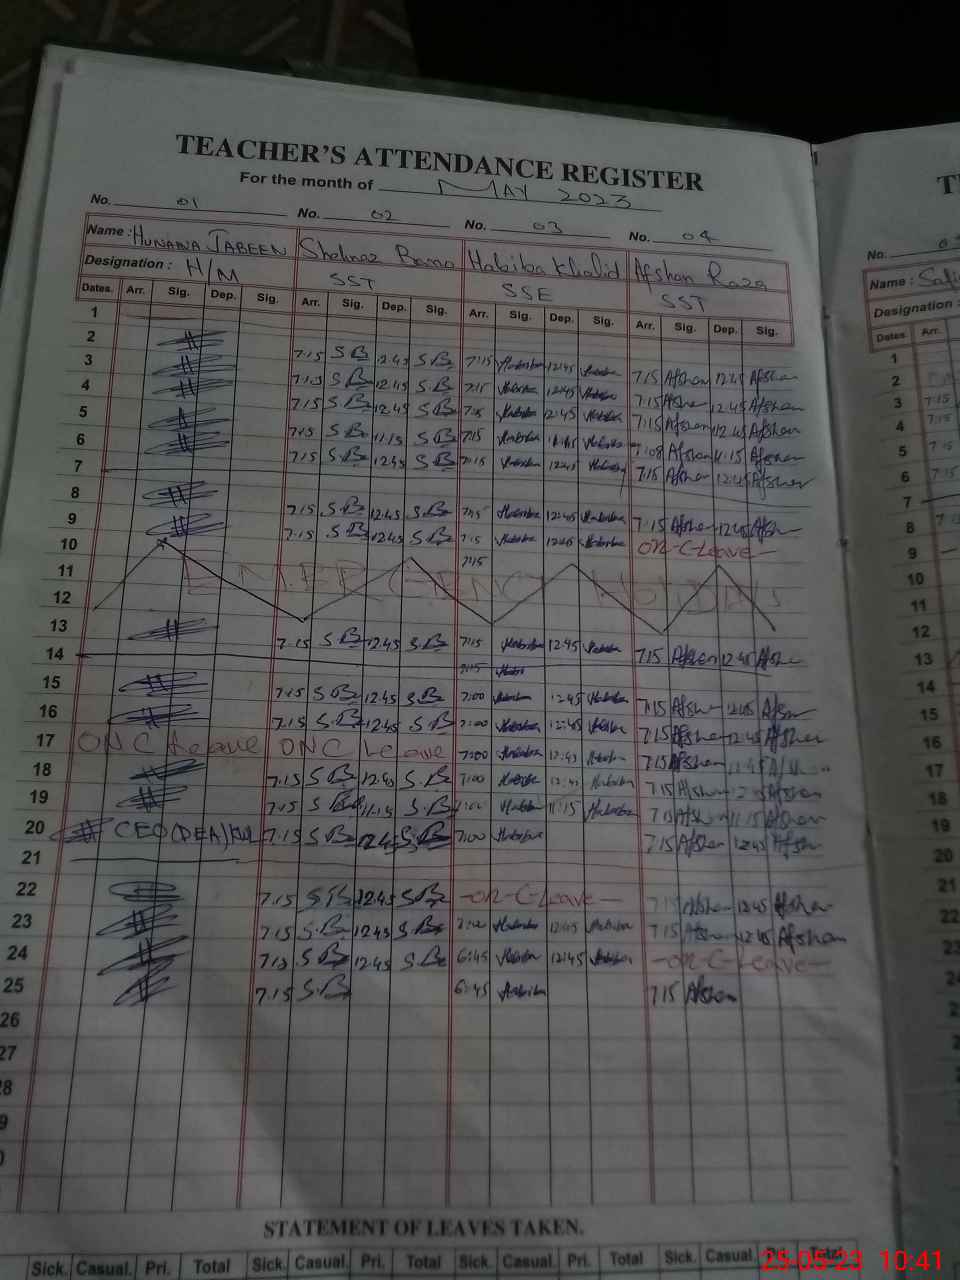 TEACHER'S ATTENDANCE REGISTER
For the month of MAY 2023
No. 01 No. 02 No. 03 No. 04
Name : HUNAINA JABEEN Shehnaz Bano Habiba Khalid Afshan Raza
Designation : H/M SST SSE SST
Dates. Arr. Sig. Dep. Sig. Arr. Sig. Dep. Sig. Arr. Sig. Dep. Sig. Arr. Sig. Dep. Sig.
1
2 7:15 S.B 12:45 S.B 7:15 Habiba 12:45 Habiba 7:15 Afshan 12:45 Afshan
3 7:15 S.B 12:45 S.B 7:15 Habiba 12:45 Habiba 7:15 Afshan 12:45 Afshan
4 7:15 S.B 12:45 S.B 7:15 Habiba 12:45 Habiba 7:15 Afshan 12:45 Afshan
5 7:15 S.B 11:15 S.B 7:15 Habiba 11:15 Habiba 7:08 Afshan 11:15 Afshan
6 7:15 S.B 12:45 S.B 7:15 Habiba 12:45 Habiba 7:15 Afshan 12:45 Afshan
7
8 7:15 S.B 12:45 S.B 7:15 Habiba 12:45 Habiba 7:15 Afshan 12:45 Afshan
9 7:15 S.B 12:45 S.B 7:15 Habiba 12:45 Habiba on-C-Leave
10 7:15
11 EMERGENCY HOLIDAYS
12
13 7:15 S.B 12:45 S.B 7:15 Habiba 12:45 Habiba 7:15 Afshan 12:45 Afshan
14 7:15
15 7:15 S.B 12:45 S.B 7:00 Habiba 12:45 Habiba 7:15 Afshan 12:45 Afshan
16 7:15 S.B 12:45 S.B 7:00 Habiba 12:45 Habiba 7:15 Afshan 12:45 Afshan
17 ON C Leave ON C Leave 7:00 Habiba 12:45 Habiba 7:15 Afshan 12:45 Afshan
18 7:15 S.B 12:45 S.B 7:00 Habiba 12:45 Habiba 7:15 Afshan 12:45 Afshan
19 7:15 S.B 11:15 S.B 7:00 Habiba 11:15 Habiba 7:15 Afshan 11:15 Afshan
20 CEO (DEA) 7:15 S.B 12:45 S.B 7:00 Habiba 7:15 Afshan 12:45 Afshan
21
22 7:15 S.B 12:45 S.B -on-C-Leave- 7:15 Afshan 12:45 Afshan
23 7:15 S.B 12:45 S.B Habiba 12:45 Habiba 7:15 Afshan 12:45 Afshan
24 7:15 S.B 12:45 S.B 6:45 Habiba 12:45 Habiba -on-C-Leave-
25 7:15 S.B 6:45 Habiba 7:15 Afshan
26
27
28
9
STATEMENT OF LEAVES TAKEN.
Sick. Casual. Pri. Total Sick. Casual. Pri. Total Sick. Casual. Pri. Total Sick. Casual. Total
No.
Name :
Designation :
Dates. Arr.
1
2
3 7:15
4 7:15
5 7:15
6 7:15
7
8
9
10
11
12
13
14
15
16
17
18
19
20
21
22
23
24
25-05-23 10:41